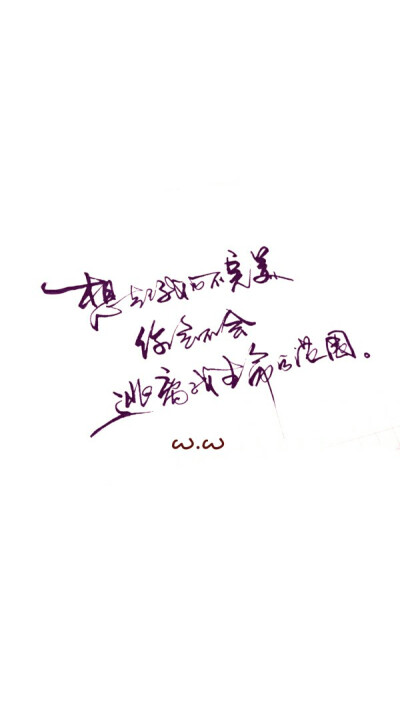 想起我的不完美
你会不会
逃离我生命的范围。
ω.ω